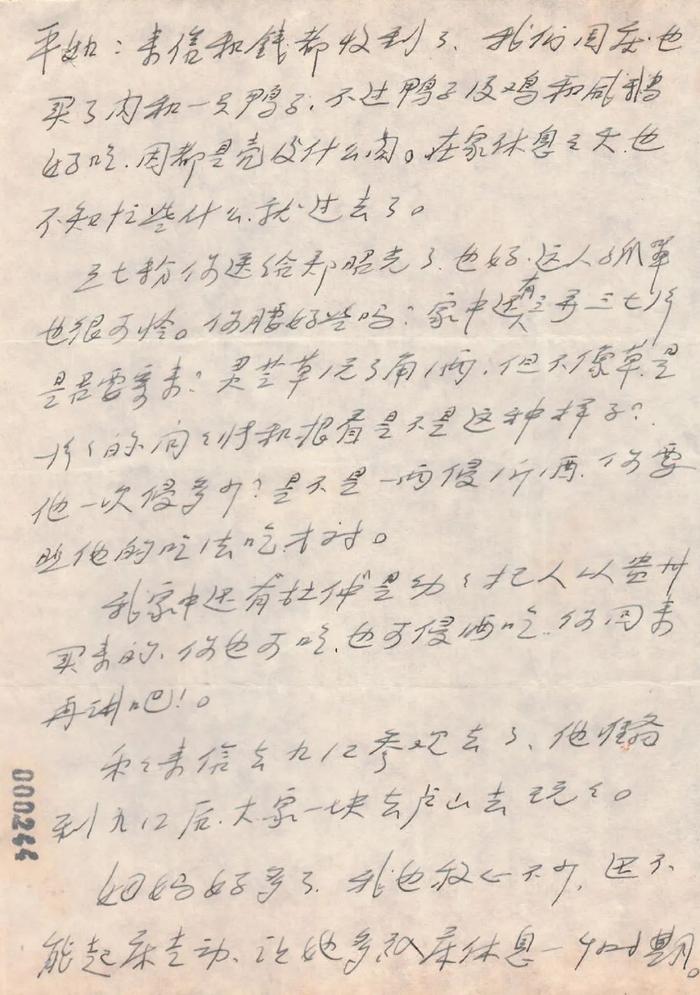 平如：来信和钱都收到了、我们国庆也
买了肉和一只鸭子.不过鸭子没鸡和咸鹅
好吃.因都是壳没什么肉。在家休息三天也
不知忙些什么.就过去了。
三七粉你送给郑昭先了.也好.这人孑孤单
也很可怜。你腰好些吗？家中还有三七片
是否要寄来？灵芝草1元3角1两，但不像草.是
一片〻的.问〻姊和根看是不是这种样子？
他一次侵多少？是不是一两侵1斤酒.你要
照他的吃法吃才对。
我家中还有"杜仲"是幼〻托人从贵州
买来的.你也可吃.也可侵酒吃.你回来
再讲吧！。
和〻来信去九江参观去了、他准备
到九江后.大家一块去庐山去玩〻。
姻妈好多了.我也放心不少，还不
能起床走动、让她多卧床休息一个时期。
000244